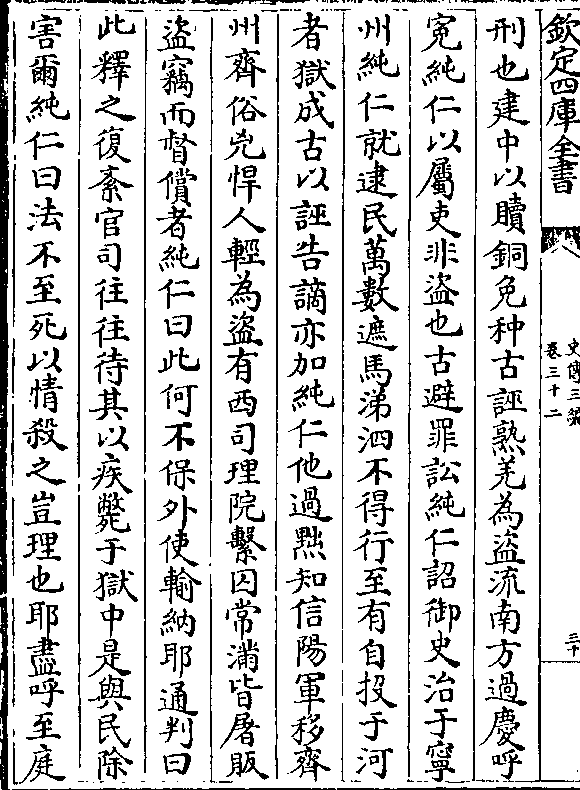 欽定四庫全書
史傳三編
卷三十二
三十
刑也建中以贖銅免种古誣熟羌為盜流南方過慶呼
寃純仁以屬吏非盜也古避罪訟純仁詔御史治于寧
州純仁就逮民萬數遮馬涕泗不得行至有自投于河
者獄成古以誣告謫亦加純仁他過黜知信陽軍移齊
州齊俗兇悍人輕為盜有西司理院繫囚常滿皆屠販
盜竊而督償者純仁曰此何不保外使輸納耶通判曰
此釋之復紊官司往往待其以疾斃于獄中是與民除
害爾純仁曰法不至死以情殺之豈理也耶盡呼至庭